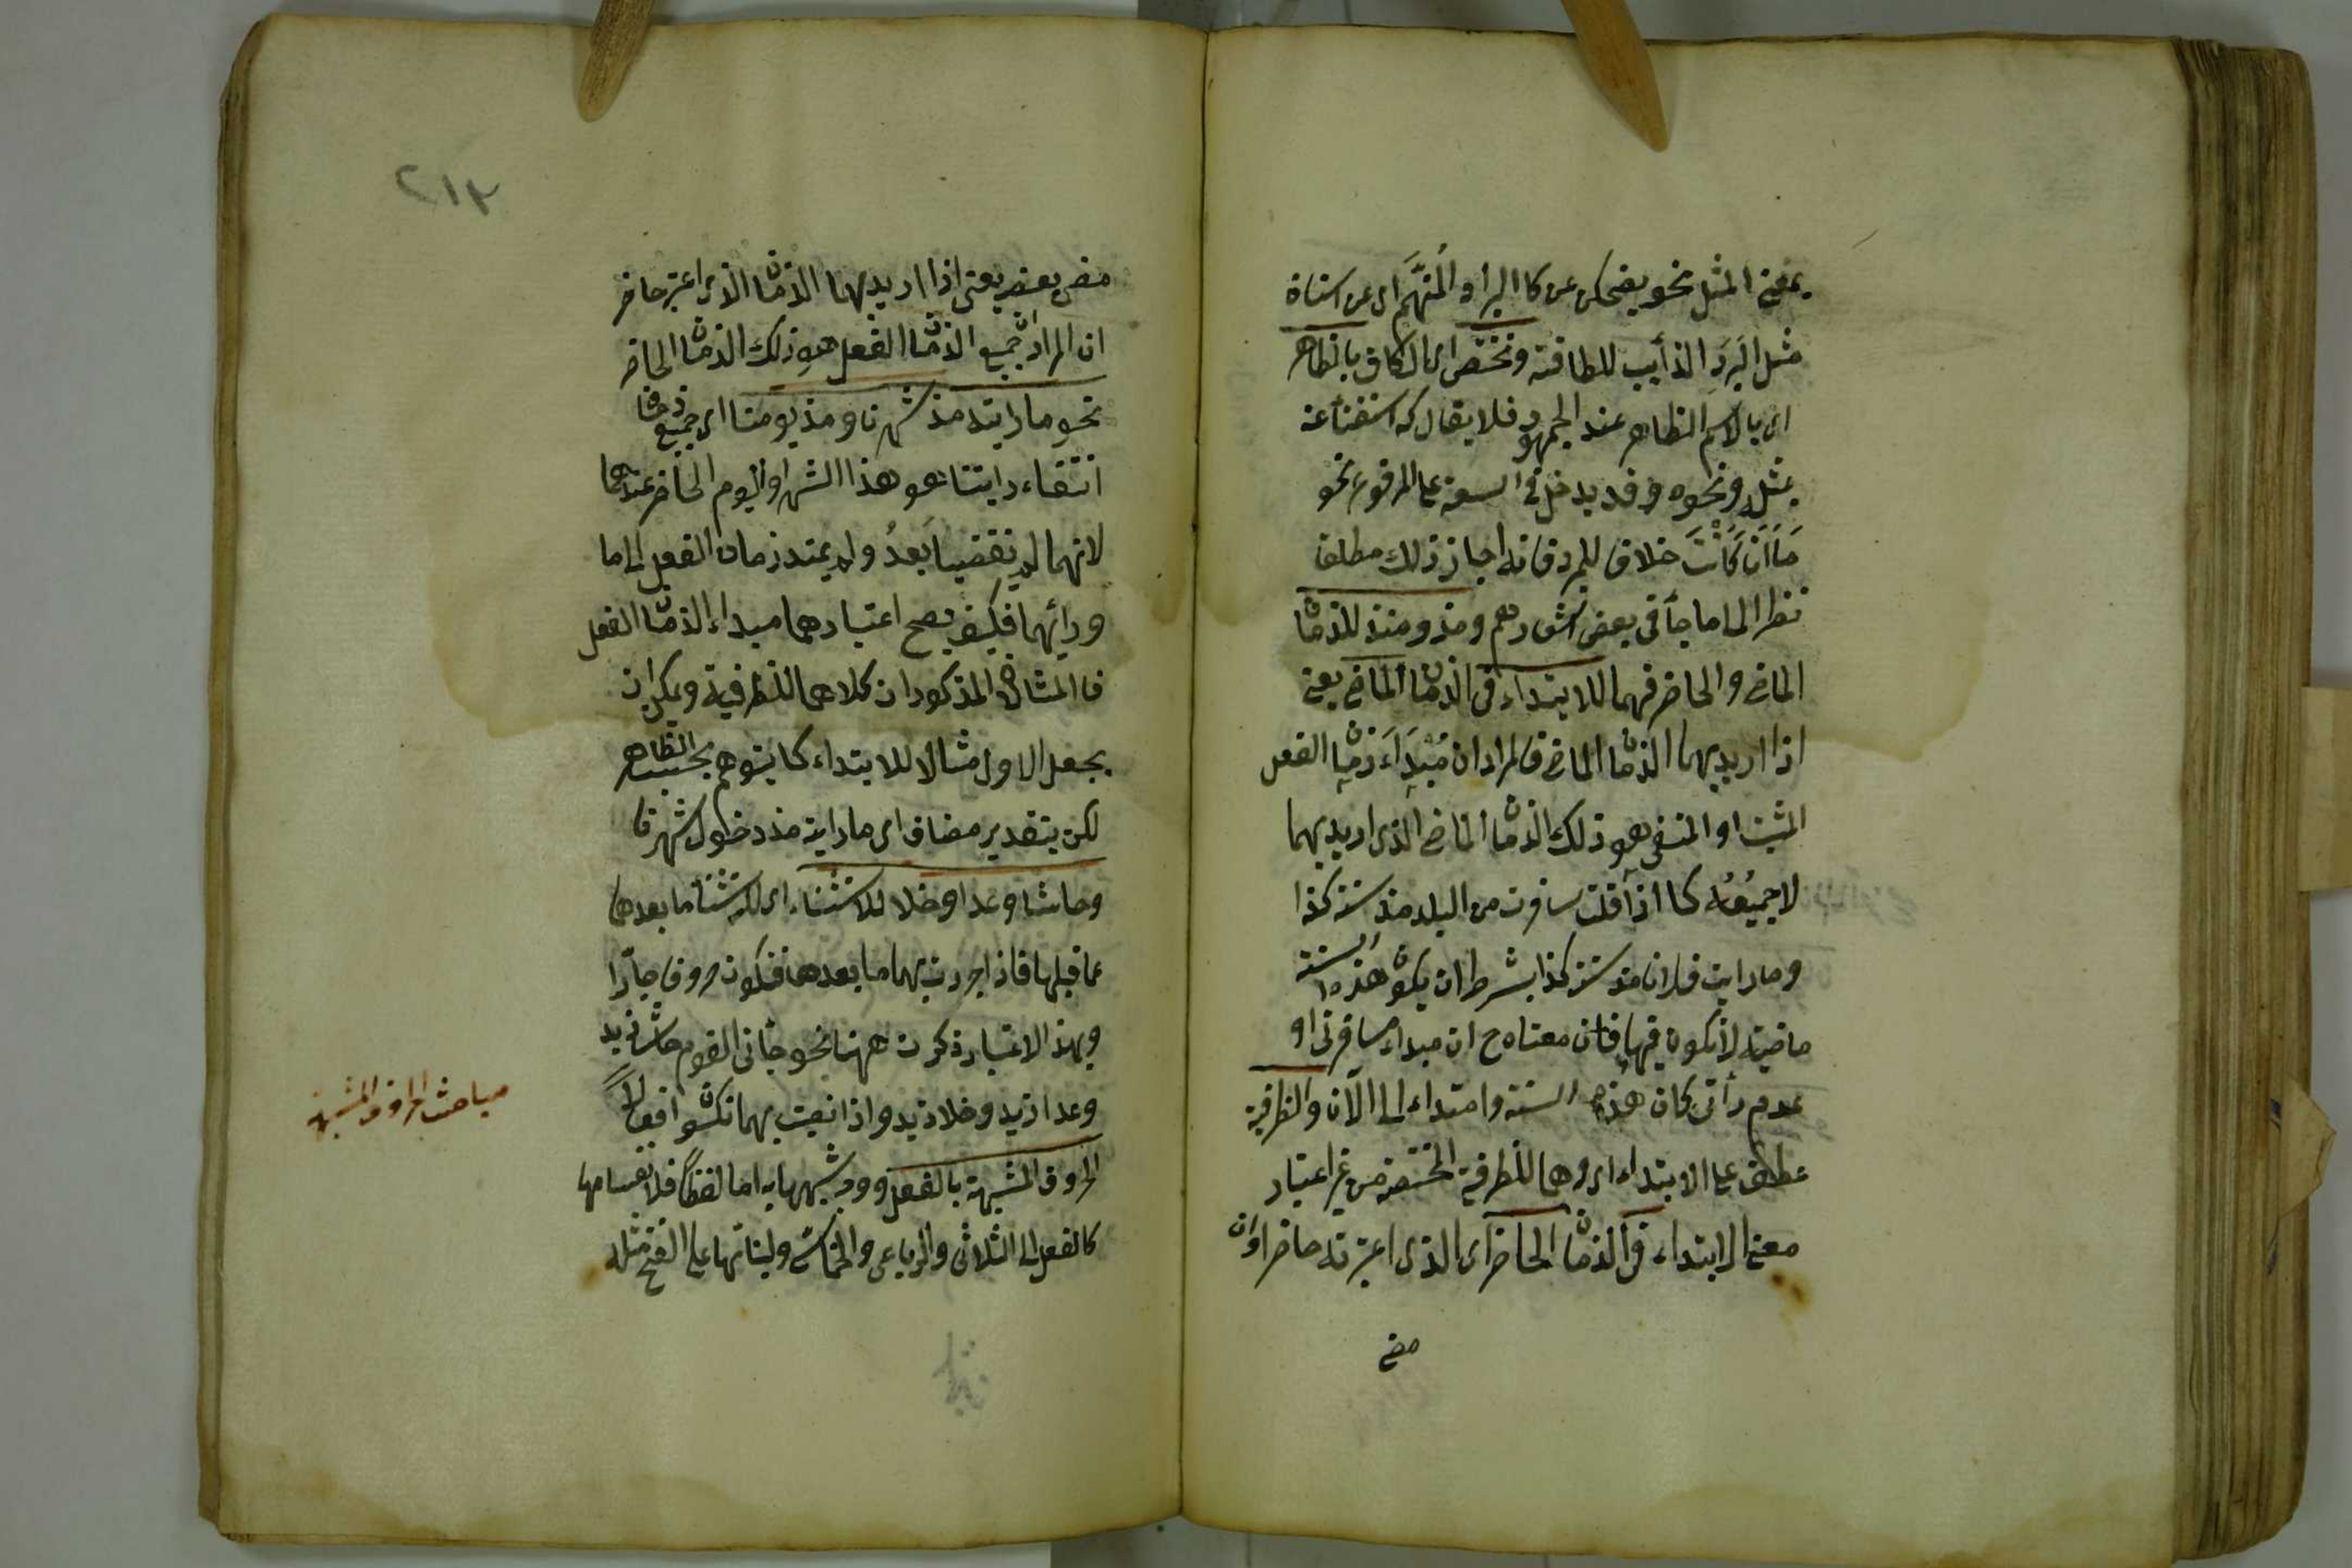 بمعنى المثل نحو يضحكن عن كالبرد المنهم اى عن اسنان
مثل البرد الذائب للطافته وتختص اى الكاف بالظاهر
اى بالاسم الظاهر عند الجمهور فلا يقال كه استغناء عنه
بمثل ونحوه وقد يدخل فى السعة على المرفوع نحو
ما انا كانت خلاف للمبرد فانه اجاز ذلك مطلقا
نظرا الى ما جاء فى بعض اشعارهم ومذ ومنذ للزمان
الماضى والحاضر فهما للابتداء فى الزمان الماضى يعنى
اذا اريد بهما الزمان الماضى فالمراد ان مبدأ زمان الفعل
المثبت او المنفى هو ذلك الزمان الماضى الذى اريد بهما
لا جميعه كما اذا قلت سافرت من البلد منذ سنة كذا
وما رايت فلانا مذ سنة كذا بشرط ان يكون هذه السنة
ماضية لا تكون فيها فان معناه ح ان مبداء مسافرتى او
عدم رأتى كان هذه السنة وامتداء الى الآن والظرفية
عطف على الابتداء اى وهما للظرفية المختصة من غير اعتبار
معنى الابتداء فى الزمان الحاضر اى الذى اعبرته حاضرا وان
مضى
٢١٣
مضى بعضه يعنى اذا اريد بهما الزمان الذى اعتبر حاضر
ان المراد ان جميع الزمان الفعل هو ذلك الزمان الحاضر
نحو ما رايته مذ شهرنا ومذ يومنا اى جميع زمان
انتفاء رايتنا هو هذا الشهر او اليوم الحاضر عندهما
لانهما لم ينقضيا بعد ولم يمتد زمان الفعل الى ما
ورائهما فكيف يصح اعتبارهما مبداء الزمان الفعل
فالمثالان المذكوران كلاهما للظرفية ويمكن ان
يجعل الاول مثالا للابتداء كما يتوهم بحسب الظاهر
لكن بتقدير مضاف اى ما رايته مذ دخول شهرنا
وحاشا وعدا وخلا للاستثناء اى لاستثناء ما بعدها
عما قبلها فاذا جررت بهما ما بعدها فتكون حروف جارا
وبهذا الاعتبار ذكرت ههنا نحو جائنى القوم حاش زيد
وعدا زيد وخلا زيد واذا نصبت بهما تكون افعالا
الحروف المشبهة بالفعل ووجه شبهها به اما لفظا فلانقسامها
كالفعل الى الثلاثى والرباعى والخماسى ولبنائها على الفتح مثله
مباحث الحروف المشبهة